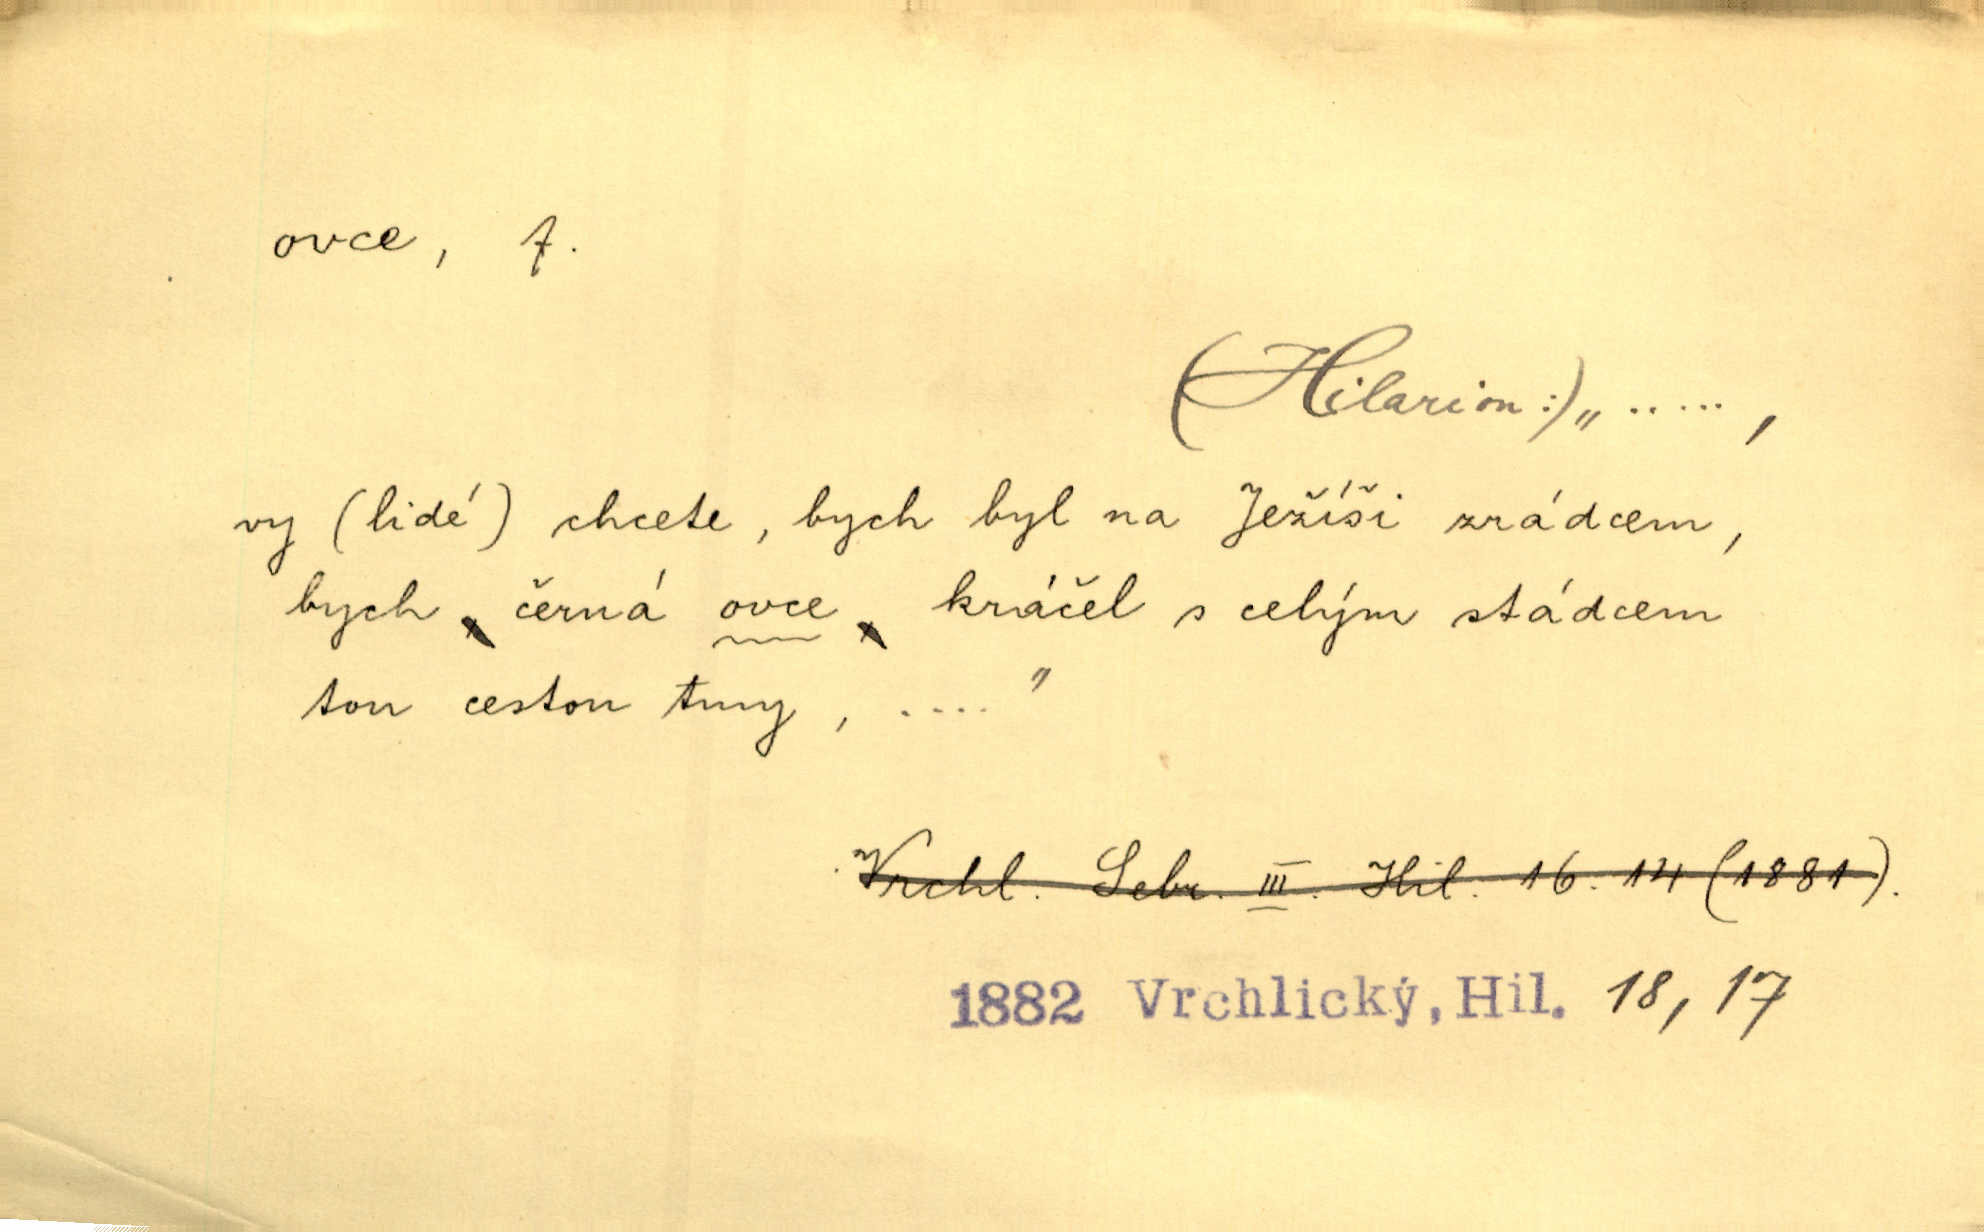 ovce, f.
(Hilarion:) „ ..... ,
vy (lidé) chcete, bych byl na Ježíši zrádcem,
bych, černá ovce, kráčel s celým stádcem
tou cestou tmy, ...."
Vrchl. Sebr. III. Hil. 16. 14 (1881).
1882 Vrchlický, Hil. 18, 17